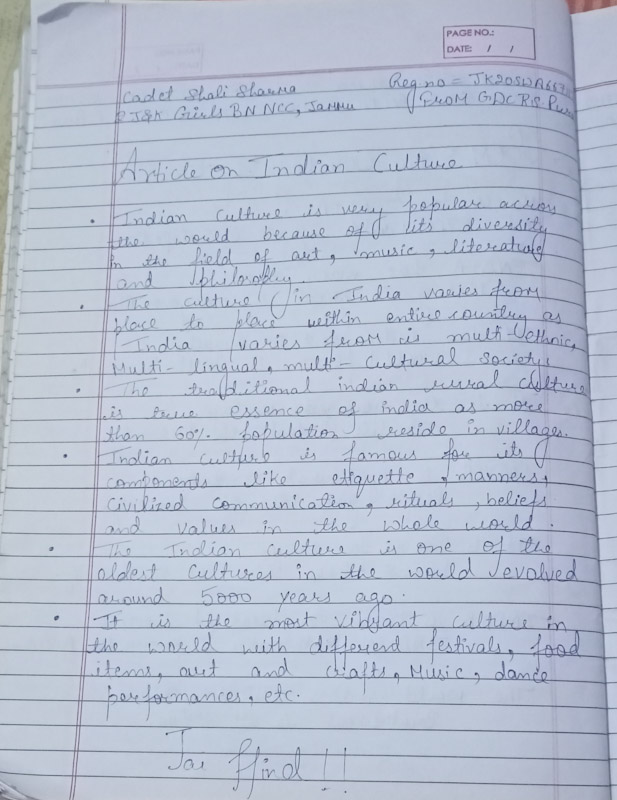 PAGE NO.:
DATE: / /
Cadet Shali Sharma
Reg no = JK20SWA
2 J&K Girls BN NCC, Jammu
From GDC R.S. Pura
Article on Indian Culture
• Indian Culture is very popular across
the world because of its diversity
in the field of art, music, literature
and philosophy.
• The culture in India varies from
place to place within entire country as
India varies from is multi-ethnic,
Multi-lingual, multi-Cultural society.
• The traditional indian rural culture
is true essence of india as more
than 60% population reside in villages.
• Indian culture is famous for its
components like etiquette, manners,
Civilized communication, rituals, beliefs
and values in the whole world.
• The Indian culture is one of the
oldest cultures in the world evolved
around 5000 years ago.
• It is the most vibrant culture in
the world with different festivals, food
items, art and crafts, Music, dance
performances, etc.
Jai Hind!!